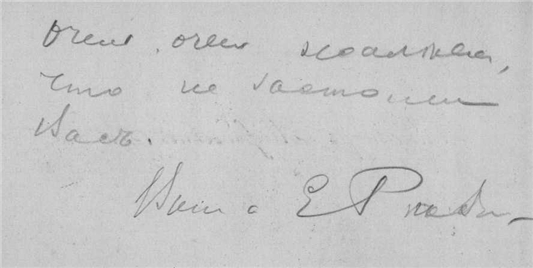 очень, очень жалела,
что не застали
Васъ.
Ваша Е